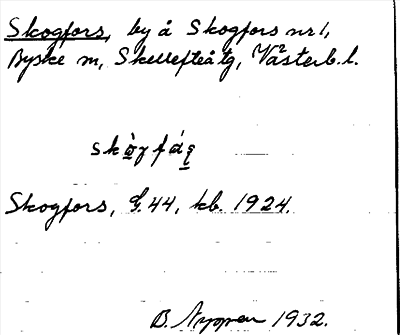 Skogfors, by å Skogfors nr 1,
Byske sn, Skellefteå tg, Västerb. l.
skòγfáς̣
Skogfors, G. 44, kb. 1924.
B. 1932.